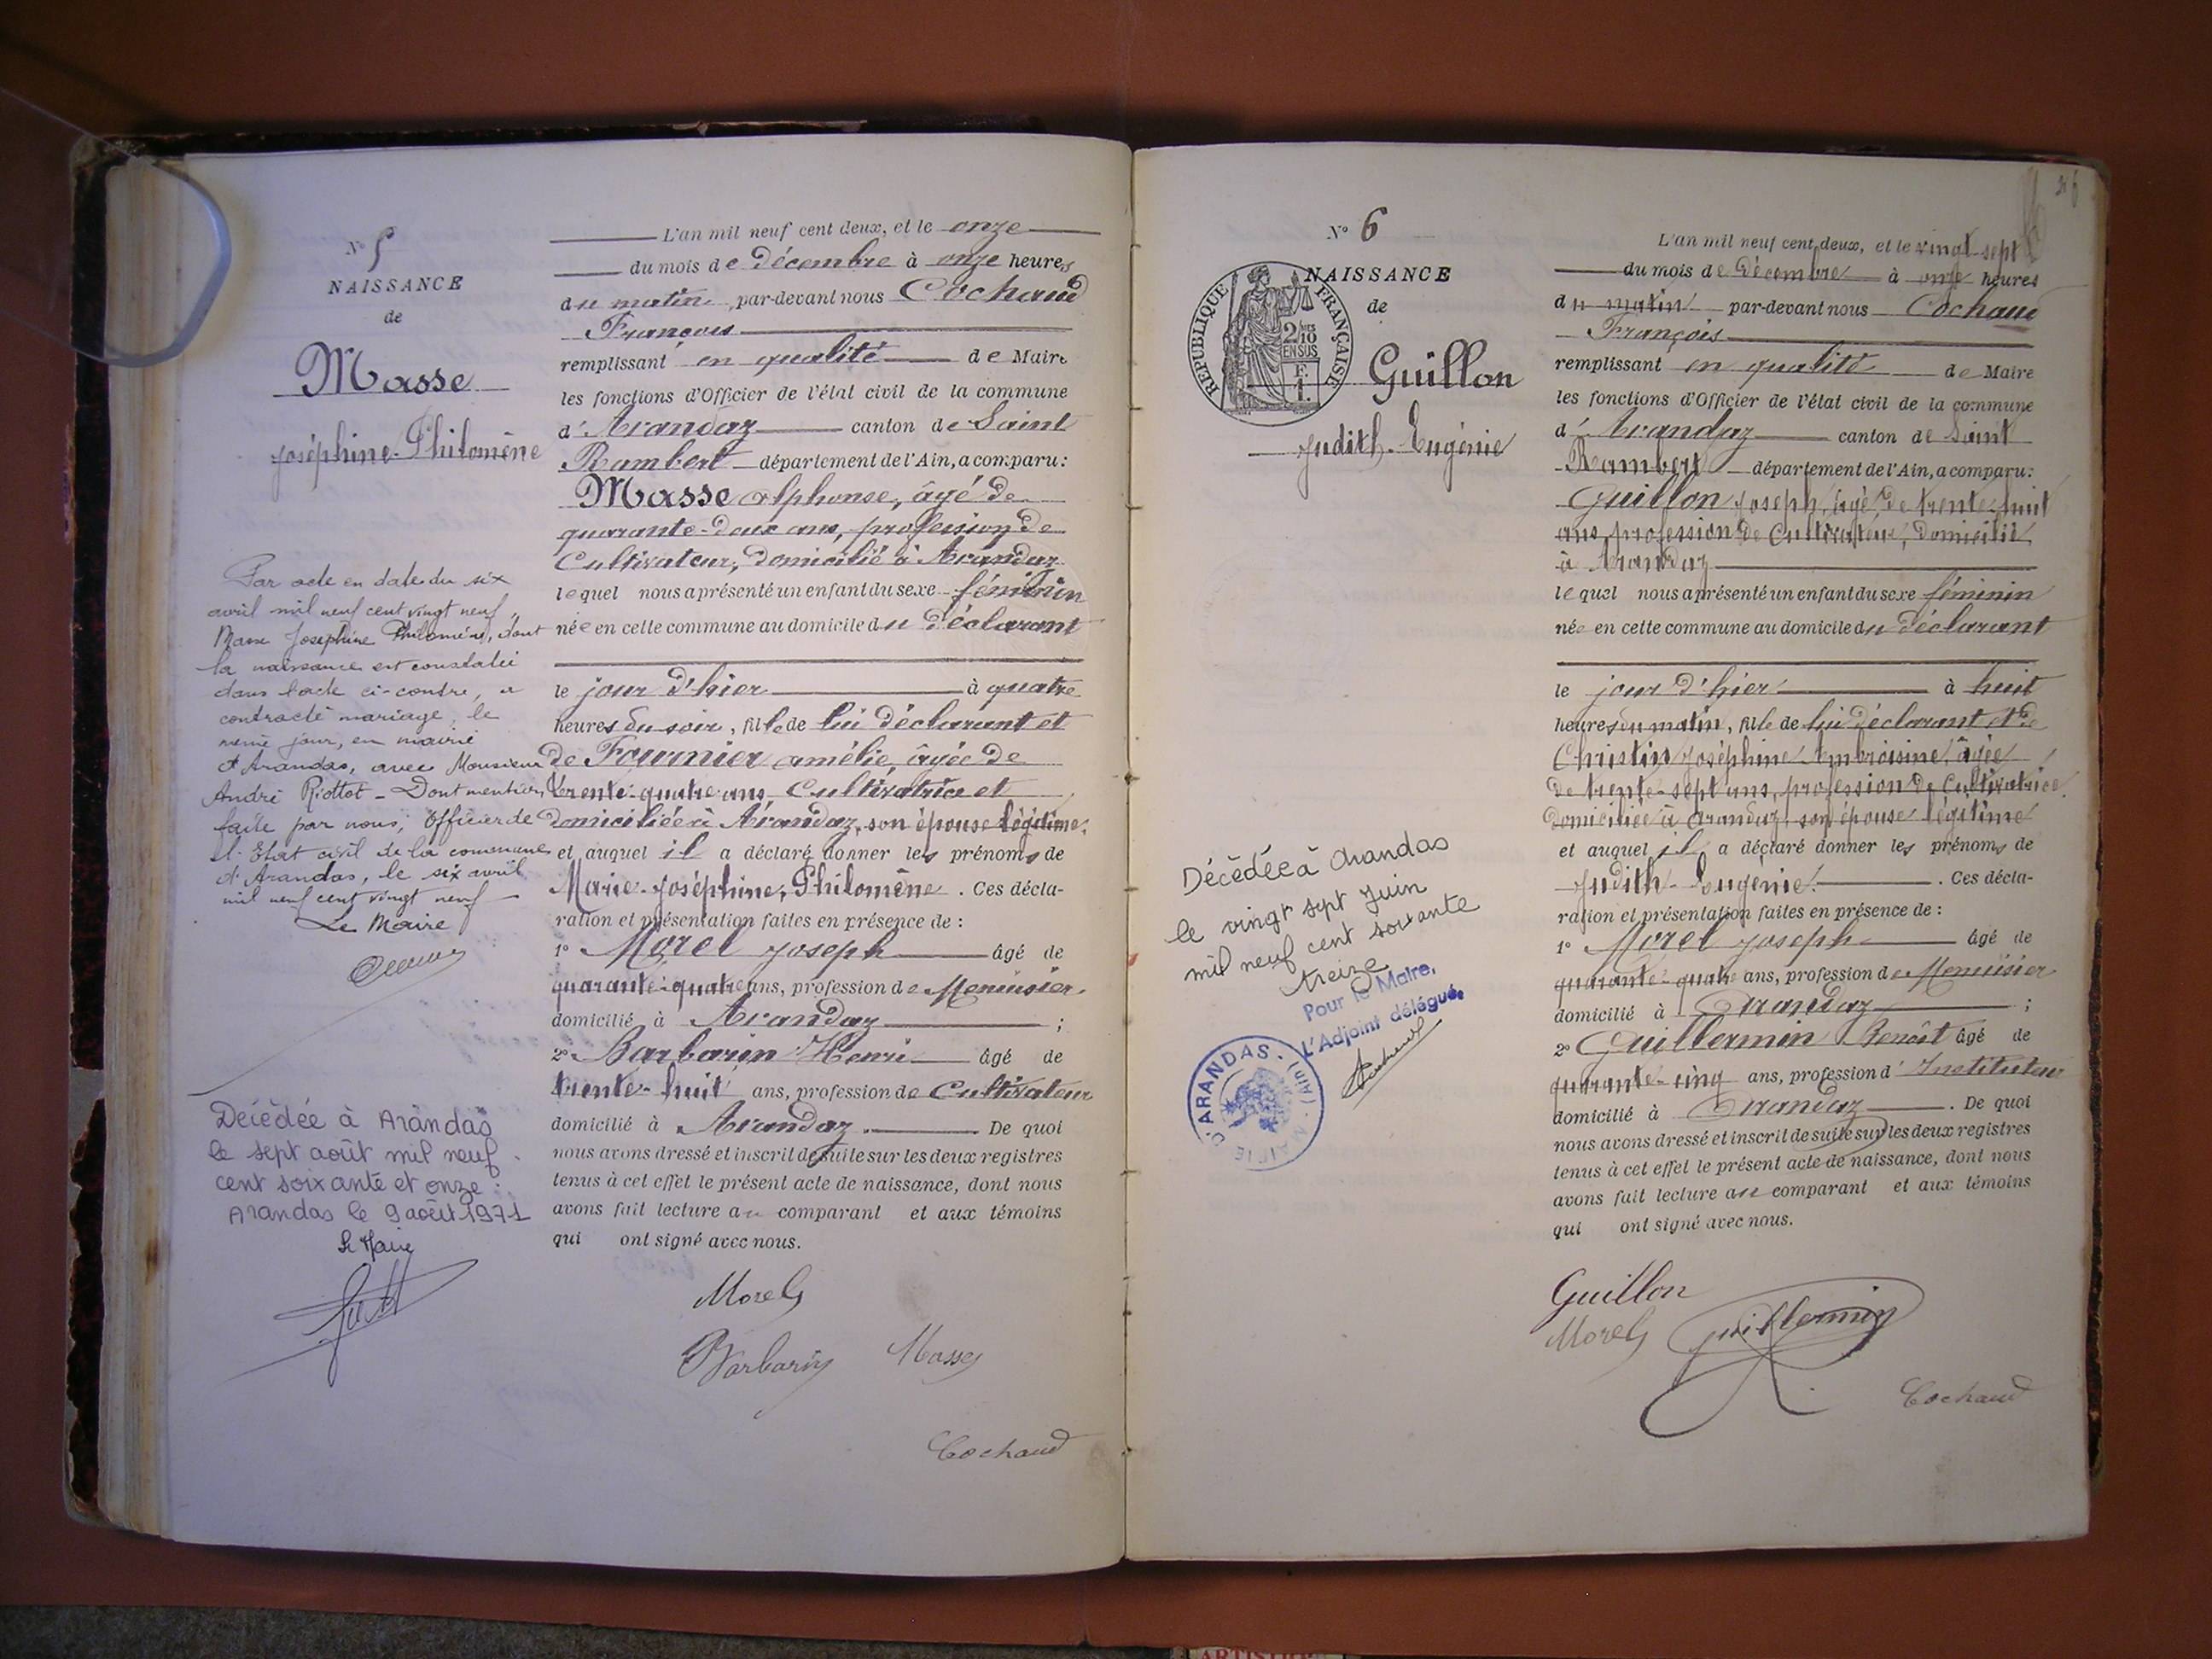 N° 5
NAISSANCE
de
Masse
Joséphine-Philomène
Par acte en date du six
avril mil neuf cent vingt neuf,
Masse Joséphine Philomène, dont
la naissance est constatée
dans l'acte ci-contre, a
contracté mariage, le
même jour, en mairie
d'Arandas, avec Monsieur
André Riottot - Dont mention
faite par nous, Officier de
l'Etat civil de la commune
d'Arandas, le six avril
mil neuf cent vingt neuf
Le Maire
Décédée à Arandas
le sept août mil neuf
cent soixante et onze
Arandas le 9 août 1971
Le Maire
L'an mil neuf cent deux, et le onze
du mois de Décembre à onze heures
du matin, par-devant nous Cochaud
François
remplissant en qualité de Maire
les fonctions d'Officier de l'état civil de la commune
d'Arandaz canton de Saint
Rambert département de l'Ain, a comparu:
Masse Alphonse, âgé de
quarante-deux ans, profession de
Cultivateur, domicilié à Arandaz
lequel nous a présenté un enfant du sexe féminin
née en cette commune au domicile du déclarant
le jour d'hier à quatre
heures du soir, fille de lui déclarant et
de Fournier amélie, âgée de
trente-quatre ans Cultivatrice et
domiciliée à Arandaz, son épouse légitime,
et auquel il a déclaré donner les prénoms de
Marie-Joséphine, Philomène. Ces décla-
ration et présentation faites en présence de :
1° Morel Joseph âgé de
quarante-quatre ans, profession de Menuisier
domicilié à Arandaz ;
2° Barbarin Henri âgé de
trente-huit ans, profession de Cultivateur
domicilié à Arandaz. De quoi
nous avons dressé et inscrit de suite sur les deux registres
tenus à cet effet le présent acte de naissance, dont nous
avons fait lecture au comparant et aux témoins
qui ont signé avec nous.
Morel
Barbarin Masse
Cochaud
N° 6
NAISSANCE
de
REPUBLIQUE FRANÇAISE
2/10
EN SUS
F.
1.
Guillon
Judith-Eugénie
Décédée à Arandas
le vingt sept Juin
mil neuf cent soixante
treize
Pour le Maire,
L'Adjoint délégué.
MAIRIE D'ARANDAS (Ain)
L'an mil neuf cent deux, et le vingt-sept
du mois de Décembre à onze heures
du matin par-devant nous Cochaud
François
remplissant en qualité de Maire
les fonctions d'Officier de l'état civil de la commune
d'Arandaz canton de Saint
Rambert département de l'Ain, a comparu:
Guillon Joseph, âgé de trente-huit
ans, profession de Cultivateur, domicilié
à Arandaz
lequel nous a présenté un enfant du sexe féminin
née en cette commune au domicile du déclarant
le jour d'hier à huit
heures du matin, fille de lui déclarant et de
Christin Joséphine Ambroisine, âgée
de trente-sept ans, profession de Cultivatrice
domiciliée à Arandaz, son épouse légitime
et auquel il a déclaré donner les prénoms de
Judith-Eugénie. Ces décla-
ration et présentation faites en présence de :
1° Morel Joseph âgé de
quarante-quatre ans, profession de Menuisier
domicilié à Arandaz ;
2° Guillermin Benoît âgé de
quarante-cinq ans, profession d'Instituteur
domicilié à Arandaz. De quoi
nous avons dressé et inscrit de suite sur les deux registres
tenus à cet effet le présent acte de naissance, dont nous
avons fait lecture au comparant et aux témoins
qui ont signé avec nous.
Guillon
Morel Guillermin
Cochaud